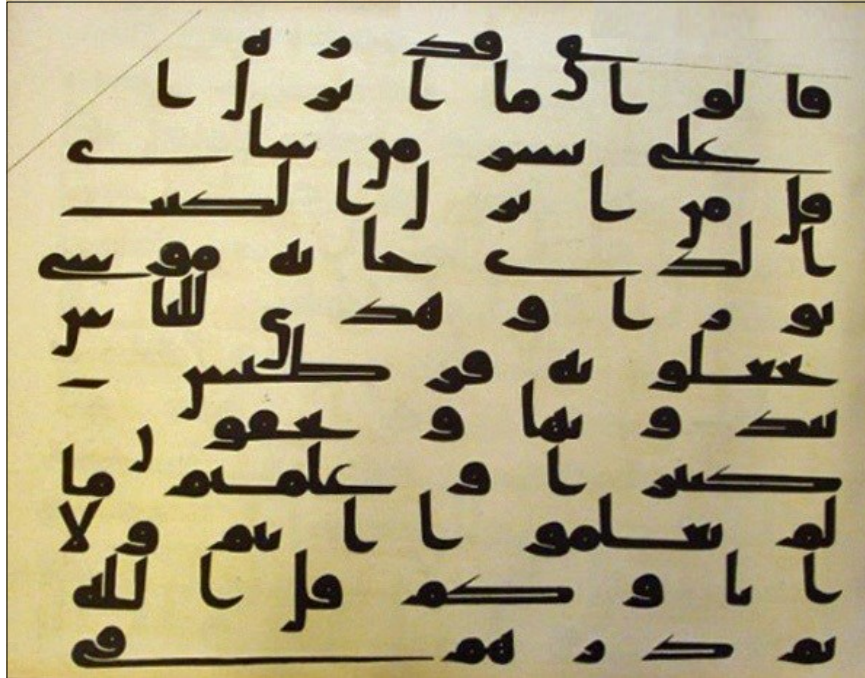 حق قدره
قالوا ما انزل ا
على بشر من شاى
قل من انزل الكتب
الذى جا به موسى
نورا وهدى للناس
تجعلونه قرطيس
تبدونها وتخفون
كثيرا وعلمتم ما
لم تعلموا انتم ولا
اباوكم قل الله
ثم ذرهم فى